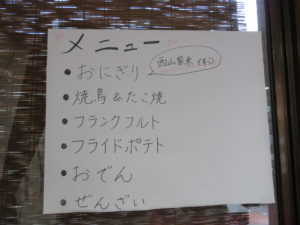 メニュー
おにぎり
西山家米です
焼鳥&たこ焼
フランクフルト
フライドポテト
おでん
ぜんざい